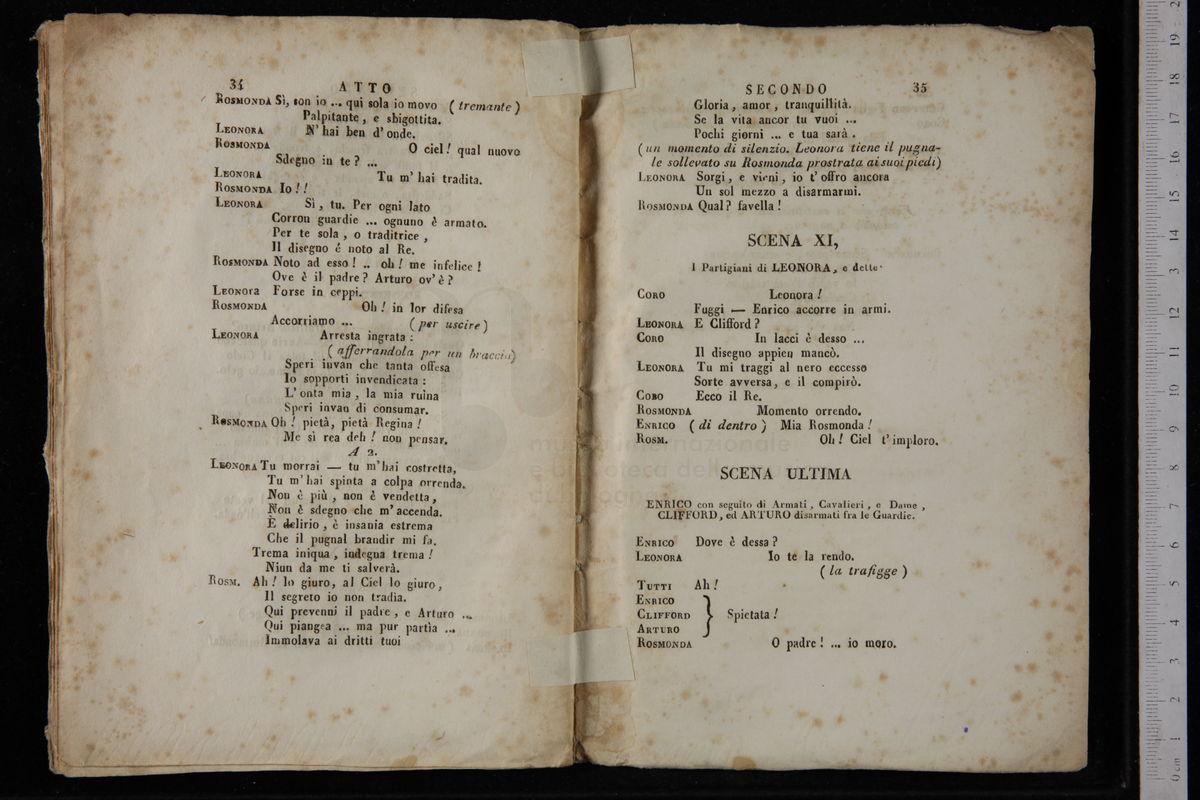 34 ATTO
ROSMONDA Sì, son io ... qui sola io movo ( tremante )
Palpitante, e sbigottita.
LEONORA N' hai ben d' onde.
ROSMONDA O ciel! qual nuovo
Sdegno in te? ...
LEONORA Tu m' hai tradita.
ROSMONDA Io!!
LEONORA Sì, tu. Per ogni lato
Corron guardie ... ognuno è armato.
Per te sola, o traditrice,
Il disegno é noto al Re.
ROSMONDA Noto ad esso! .. oh! me infelice!
Ove è il padre? Arturo ov' è?
LEONORA Forse in ceppi.
ROSMONDA Oh! in lor difesa
Accorriamo ... ( per uscire )
LEONORA Arresta ingrata:
( afferrandola per un braccio)
Speri invan che tanta offesa
Io sopporti invendicata:
L' onta mia, la mia ruina
Speri invan di consumar.
ROSMONDA Oh! pietà, pietà Regina!
Me sì rea deh! non pensar.
A 2.
LEONORA Tu morrai — tu m' hai costretta,
Tu m' hai spinta a colpa orrenda.
Non è più, non è vendetta,
Non è sdegno che m' accenda.
È delirio, è insania estrema
Che il pugnal brandir mi fa.
Trema iniqua, indegna trema!
Niun da me ti salverà.
ROSM. Ah! lo giuro, al Ciel lo giuro,
Il segreto io non tradìa.
Qui prevenni il padre, e Arturo ...
Qui piangea ... ma pur partìa ...
Immolava ai dritti tuoi
SECONDO 35
Gloria, amor, tranquillità.
Se la vita ancor tu vuoi ...
Pochi giorni ... e tua sarà.
(un momento di silenzio. Leonora tiene il pugna-
le sollevato su Rosmonda prostrata ai suoi piedi)
LEONORA Sorgi, e vieni, io t' offro ancora
Un sol mezzo a disarmarmi.
ROSMONDA Qual? favella!
SCENA XI,
I Partigiani di LEONORA, e dette.
CORO Leonora!
Fuggi — Enrico accorre in armi.
LEONORA E Clifford?
CORO In lacci è desso ...
Il disegno appien mancò.
LEONORA Tu mi traggi al nero eccesso
Sorte avversa, e il compirò.
CORO Ecco il Re.
ROSMONDA Momento orrendo.
ENRICO ( di dentro ) Mia Rosmonda!
ROSM. Oh! Ciel t' imploro.
SCENA ULTIMA
ENRICO con seguito di Armati, Cavalieri, e Dame,
CLIFFORD, ed ARTURO disarmati fra le Guardie.
ENRICO Dove è dessa?
LEONORA Io te la rendo.
( la trafigge )
TUTTI Ah!
ENRICO
CLIFFORD } Spietata!
ARTURO
ROSMONDA O padre! ... io moro.